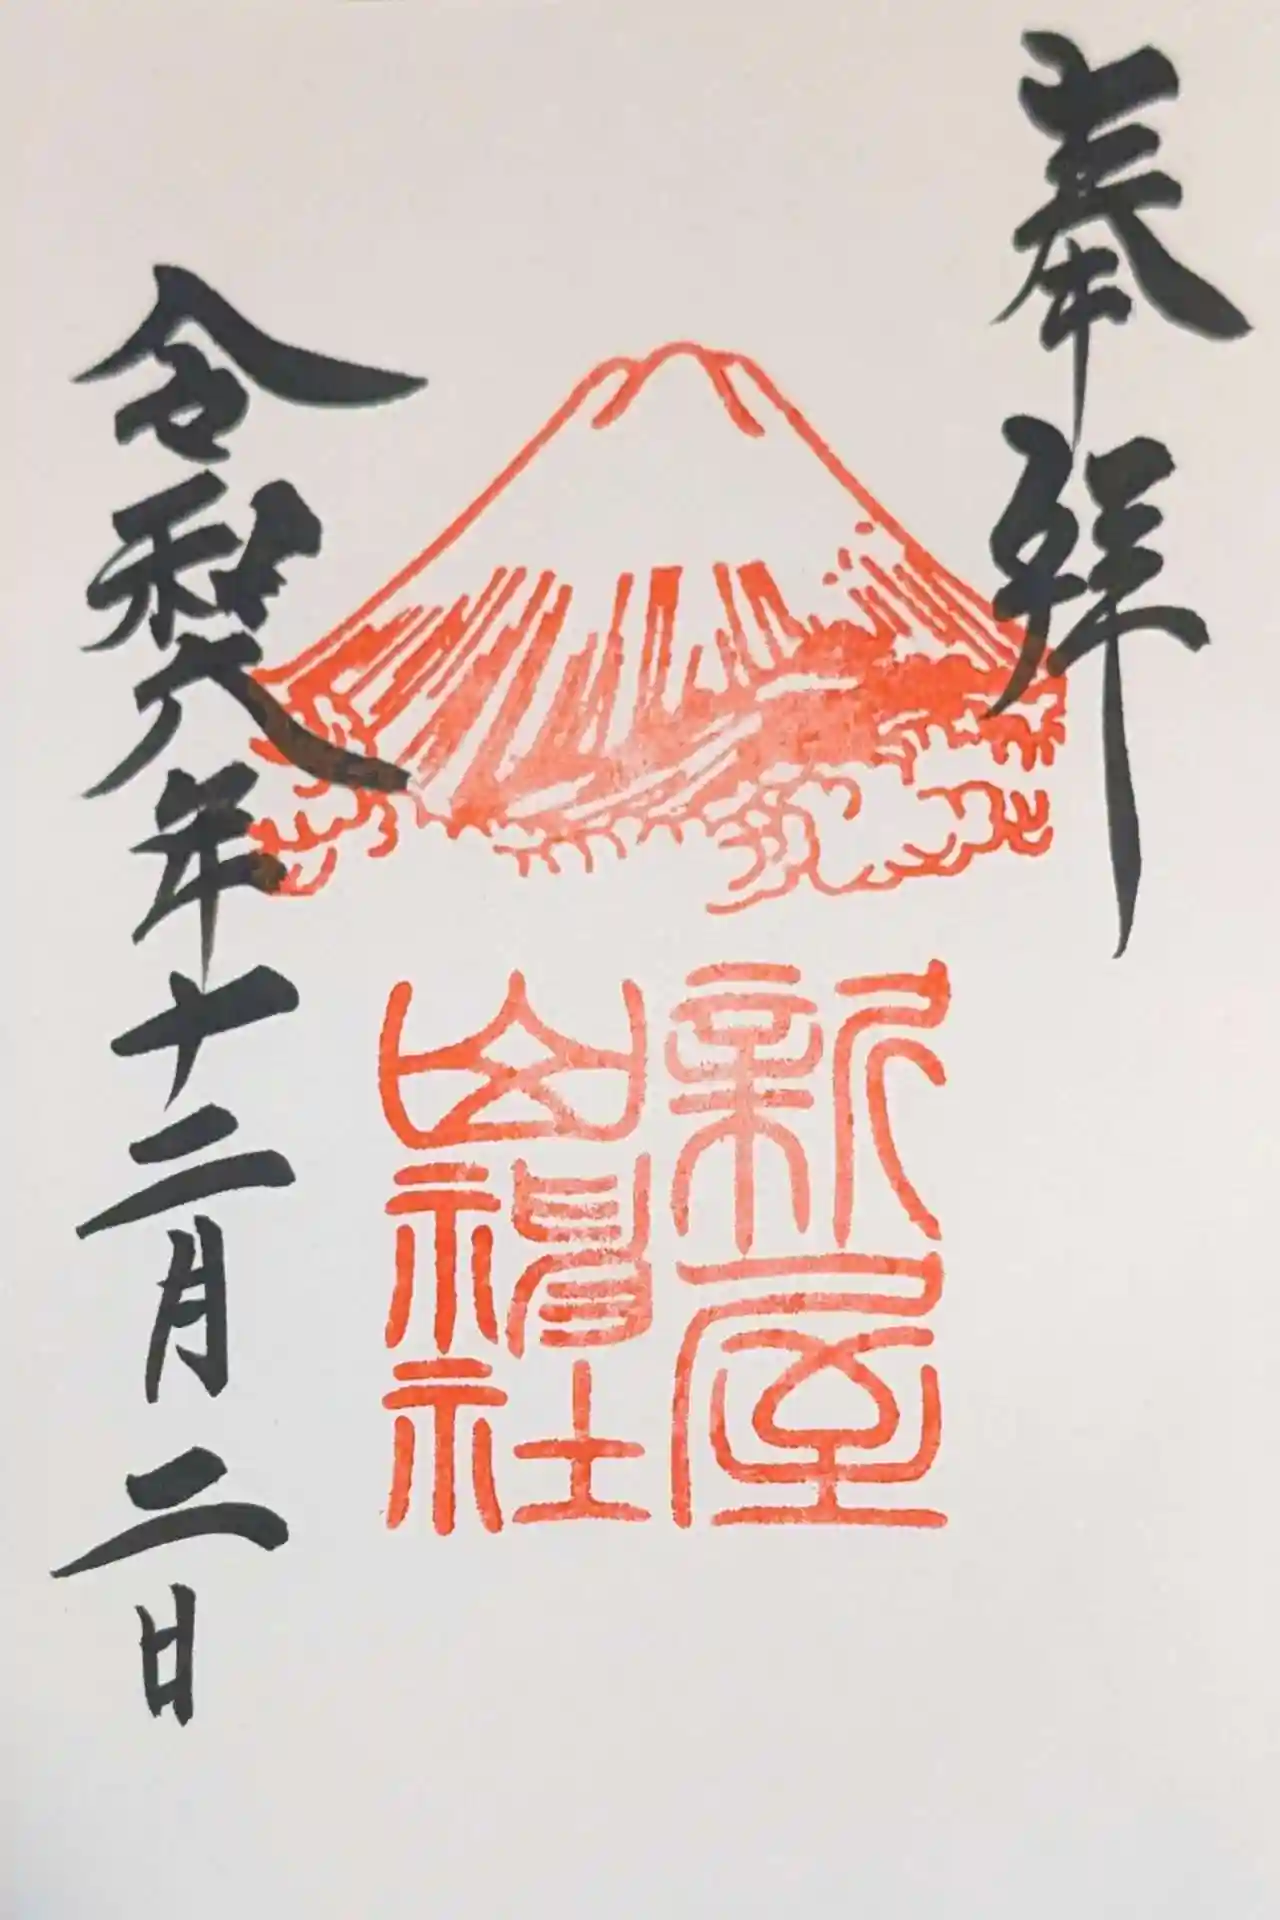 奉拝
新屋
山神社
令和八年十二月二日